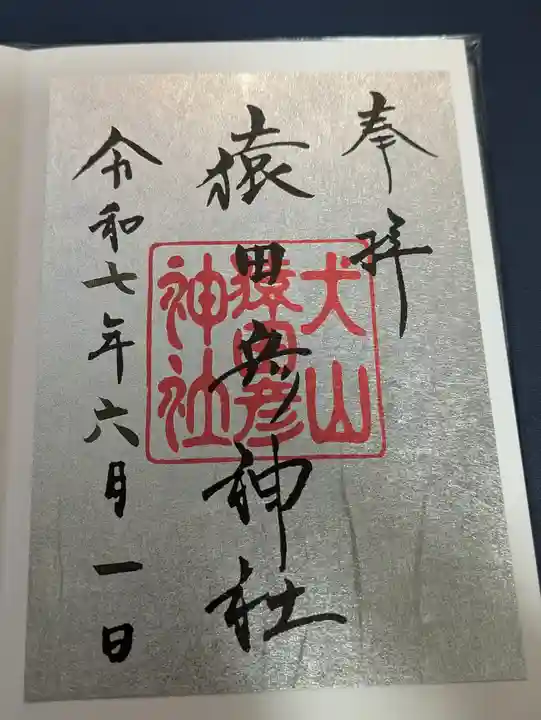 奉拝
猿田彦神社
令和七年六月一日
犬山
猿田彦
神社